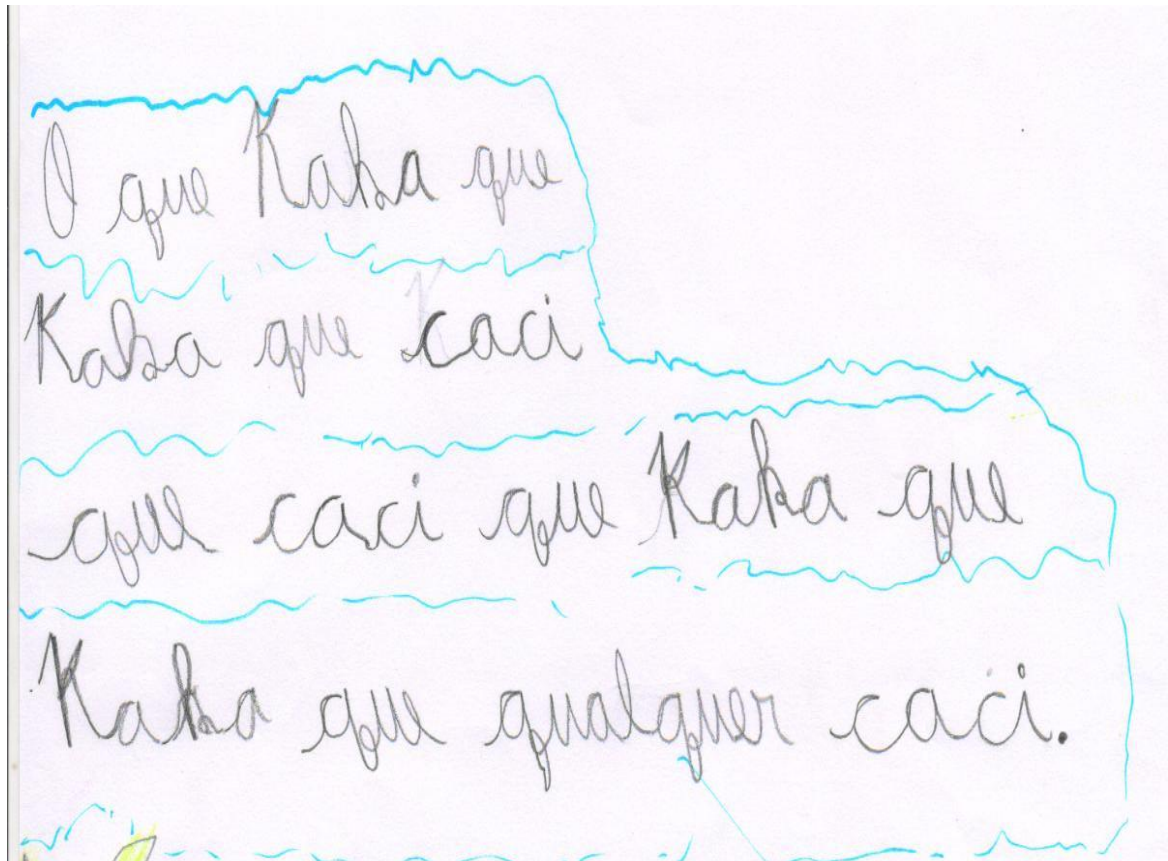 O que Kaka que
Kaka que caci
que caci que Kaka que
Kaka que qualquer caci.